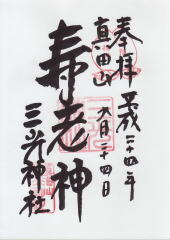 奉拝 平成二十四年
真田山 六月二十四日
寿老神
三光神社